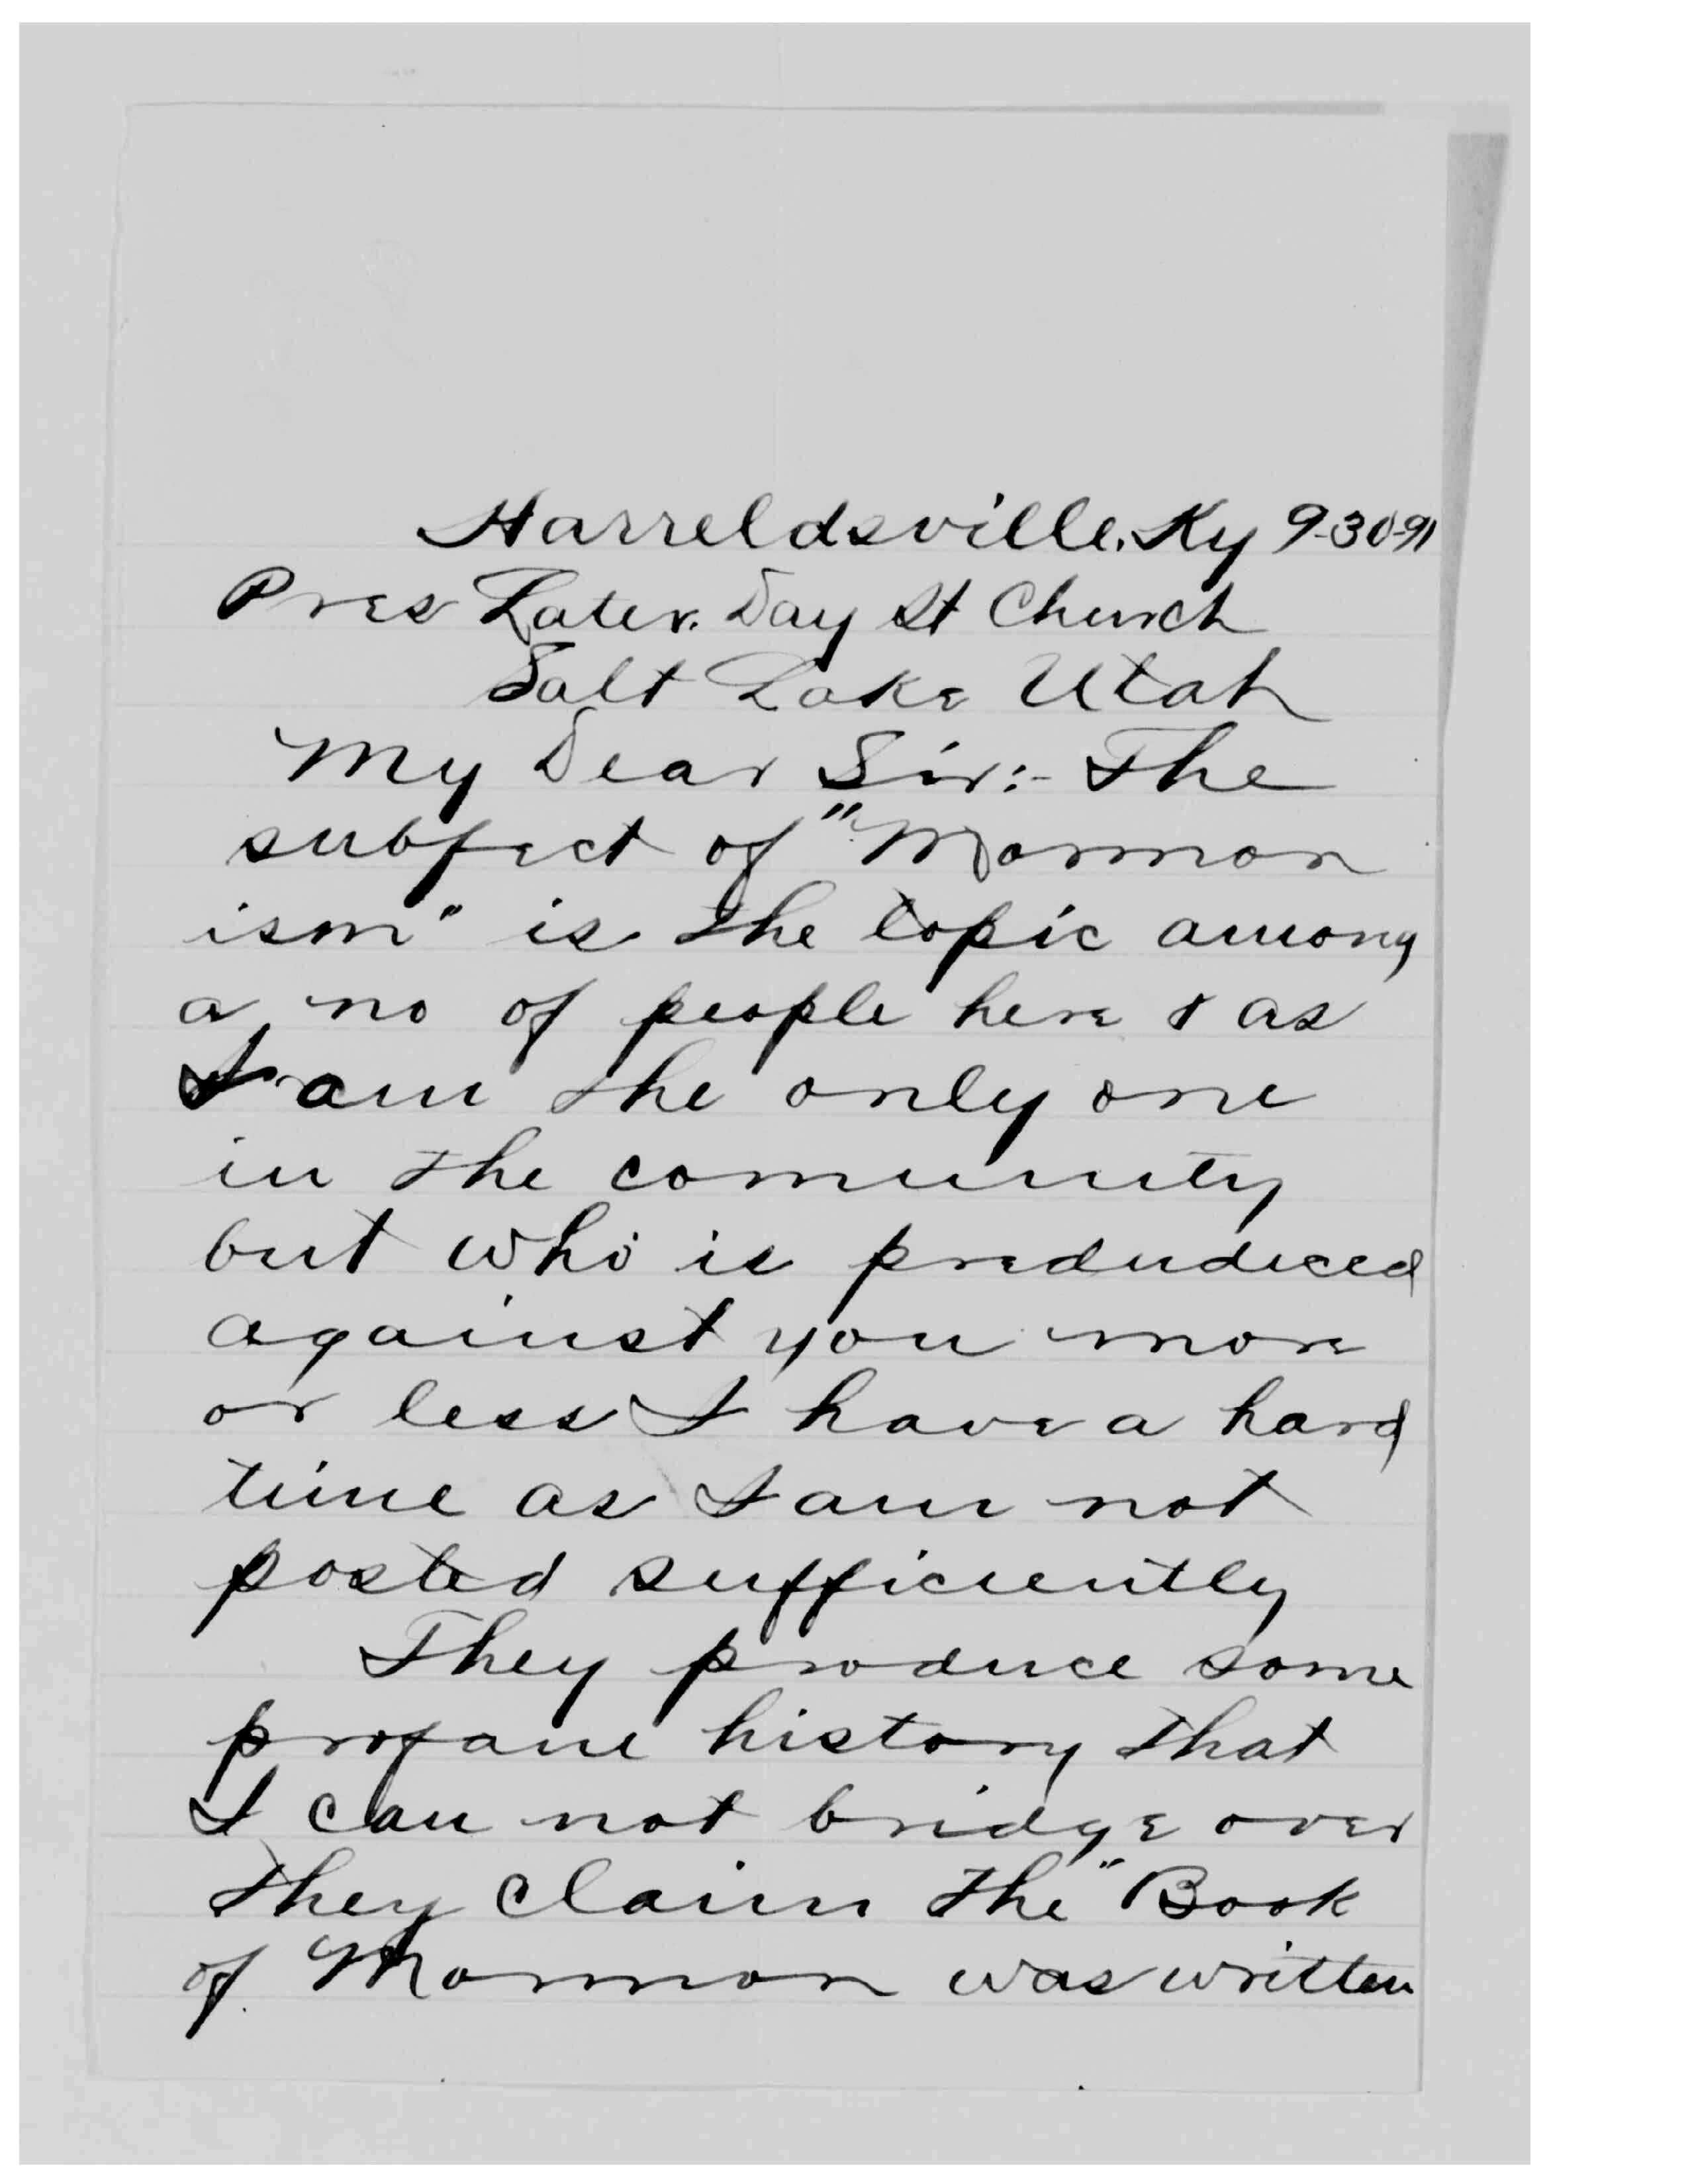 Harreldsville, Ky 9-30-91
Pres Later. Day St Church
Salt Lake Utah
My Dear Sir:- The
subject of "Mormon
ism" is the topic among
a no of people here & as
I am the only one
in the comunity
but who is preduduced
against you more
or less I have a hard
time as I am not
posted sufficiently
They produce some
profane history that
I can not bridge over
they claim the "Book
of Mormon was written